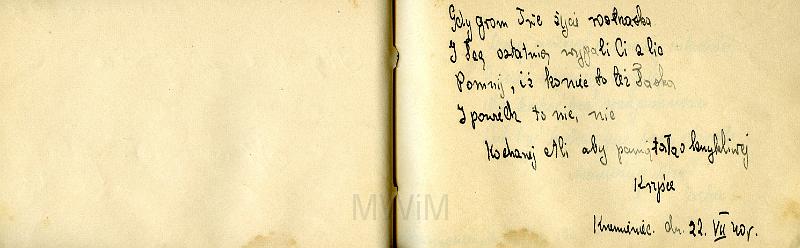 Gdy grom Twe życie roztrzaska
I łzę ostatnią wypali Ci z lic
Pomnij, iż koniec to też łaska
I powiedz to nic, nic
Kochanej Ali aby pamiętała o
Krysia
Krzemieniec. dn. 22. VII 40 r.
MWiM